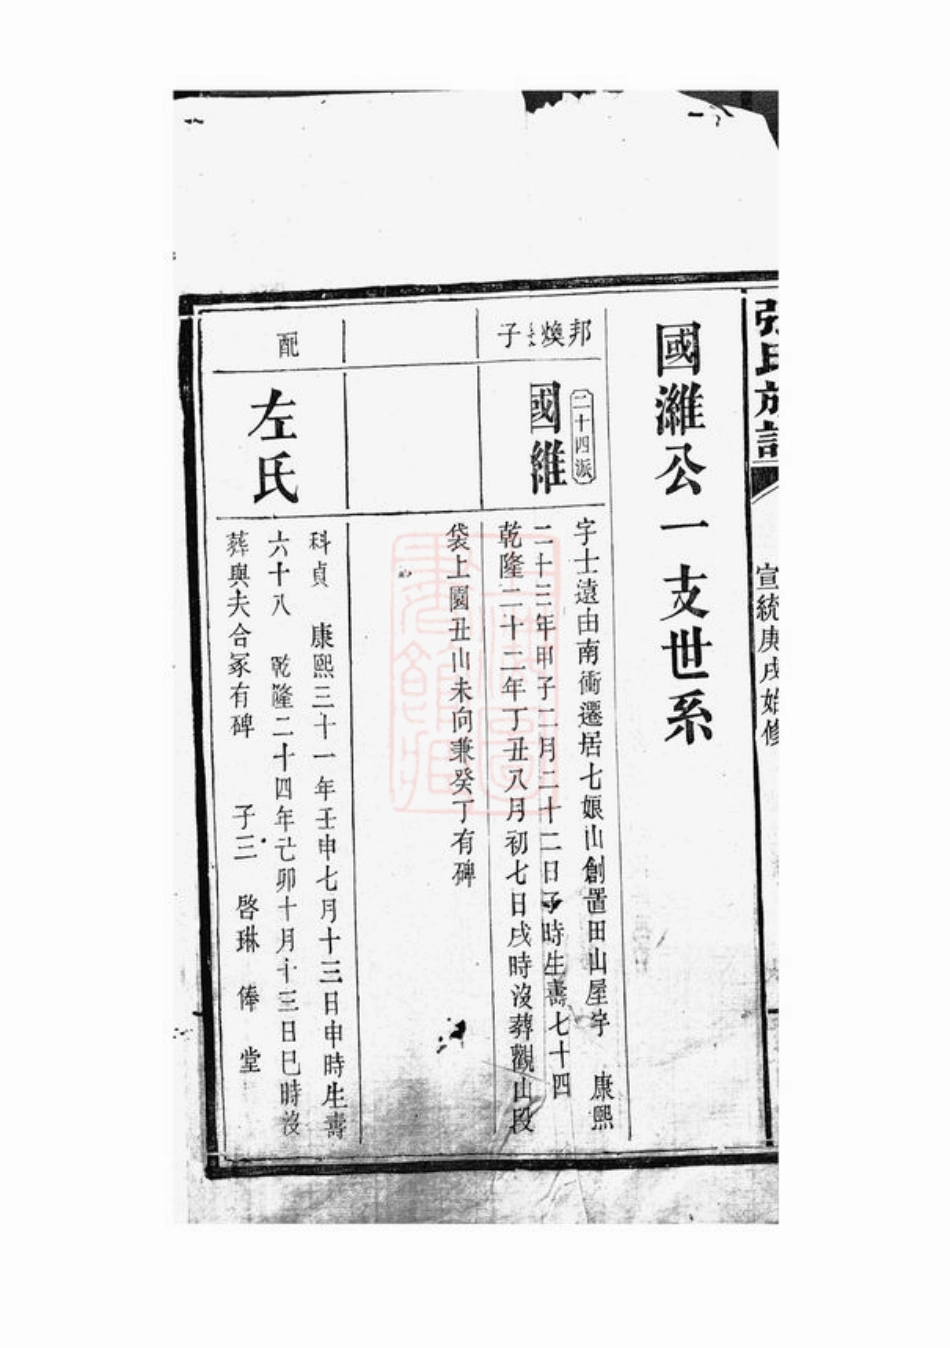 張氏族譜
宣統庚戌始修
國濰公一支世系
邦煥長子
二十四派
國維
字士遠由南衝遷居七娘山創置田山屋宇 康熙
二十三年甲子二月二十二日子時生壽七十四
乾隆二十二年丁丑八月初七日戌時沒葬觀山段
袋上園丑山未向兼癸丁有碑
配
左氏
科貞 康熙三十一年壬申七月十三日申時生壽
六十八 乾隆二十四年己卯十月十三日巳時沒
葬與夫合冢有碑 子三 啓琳 俸 堂